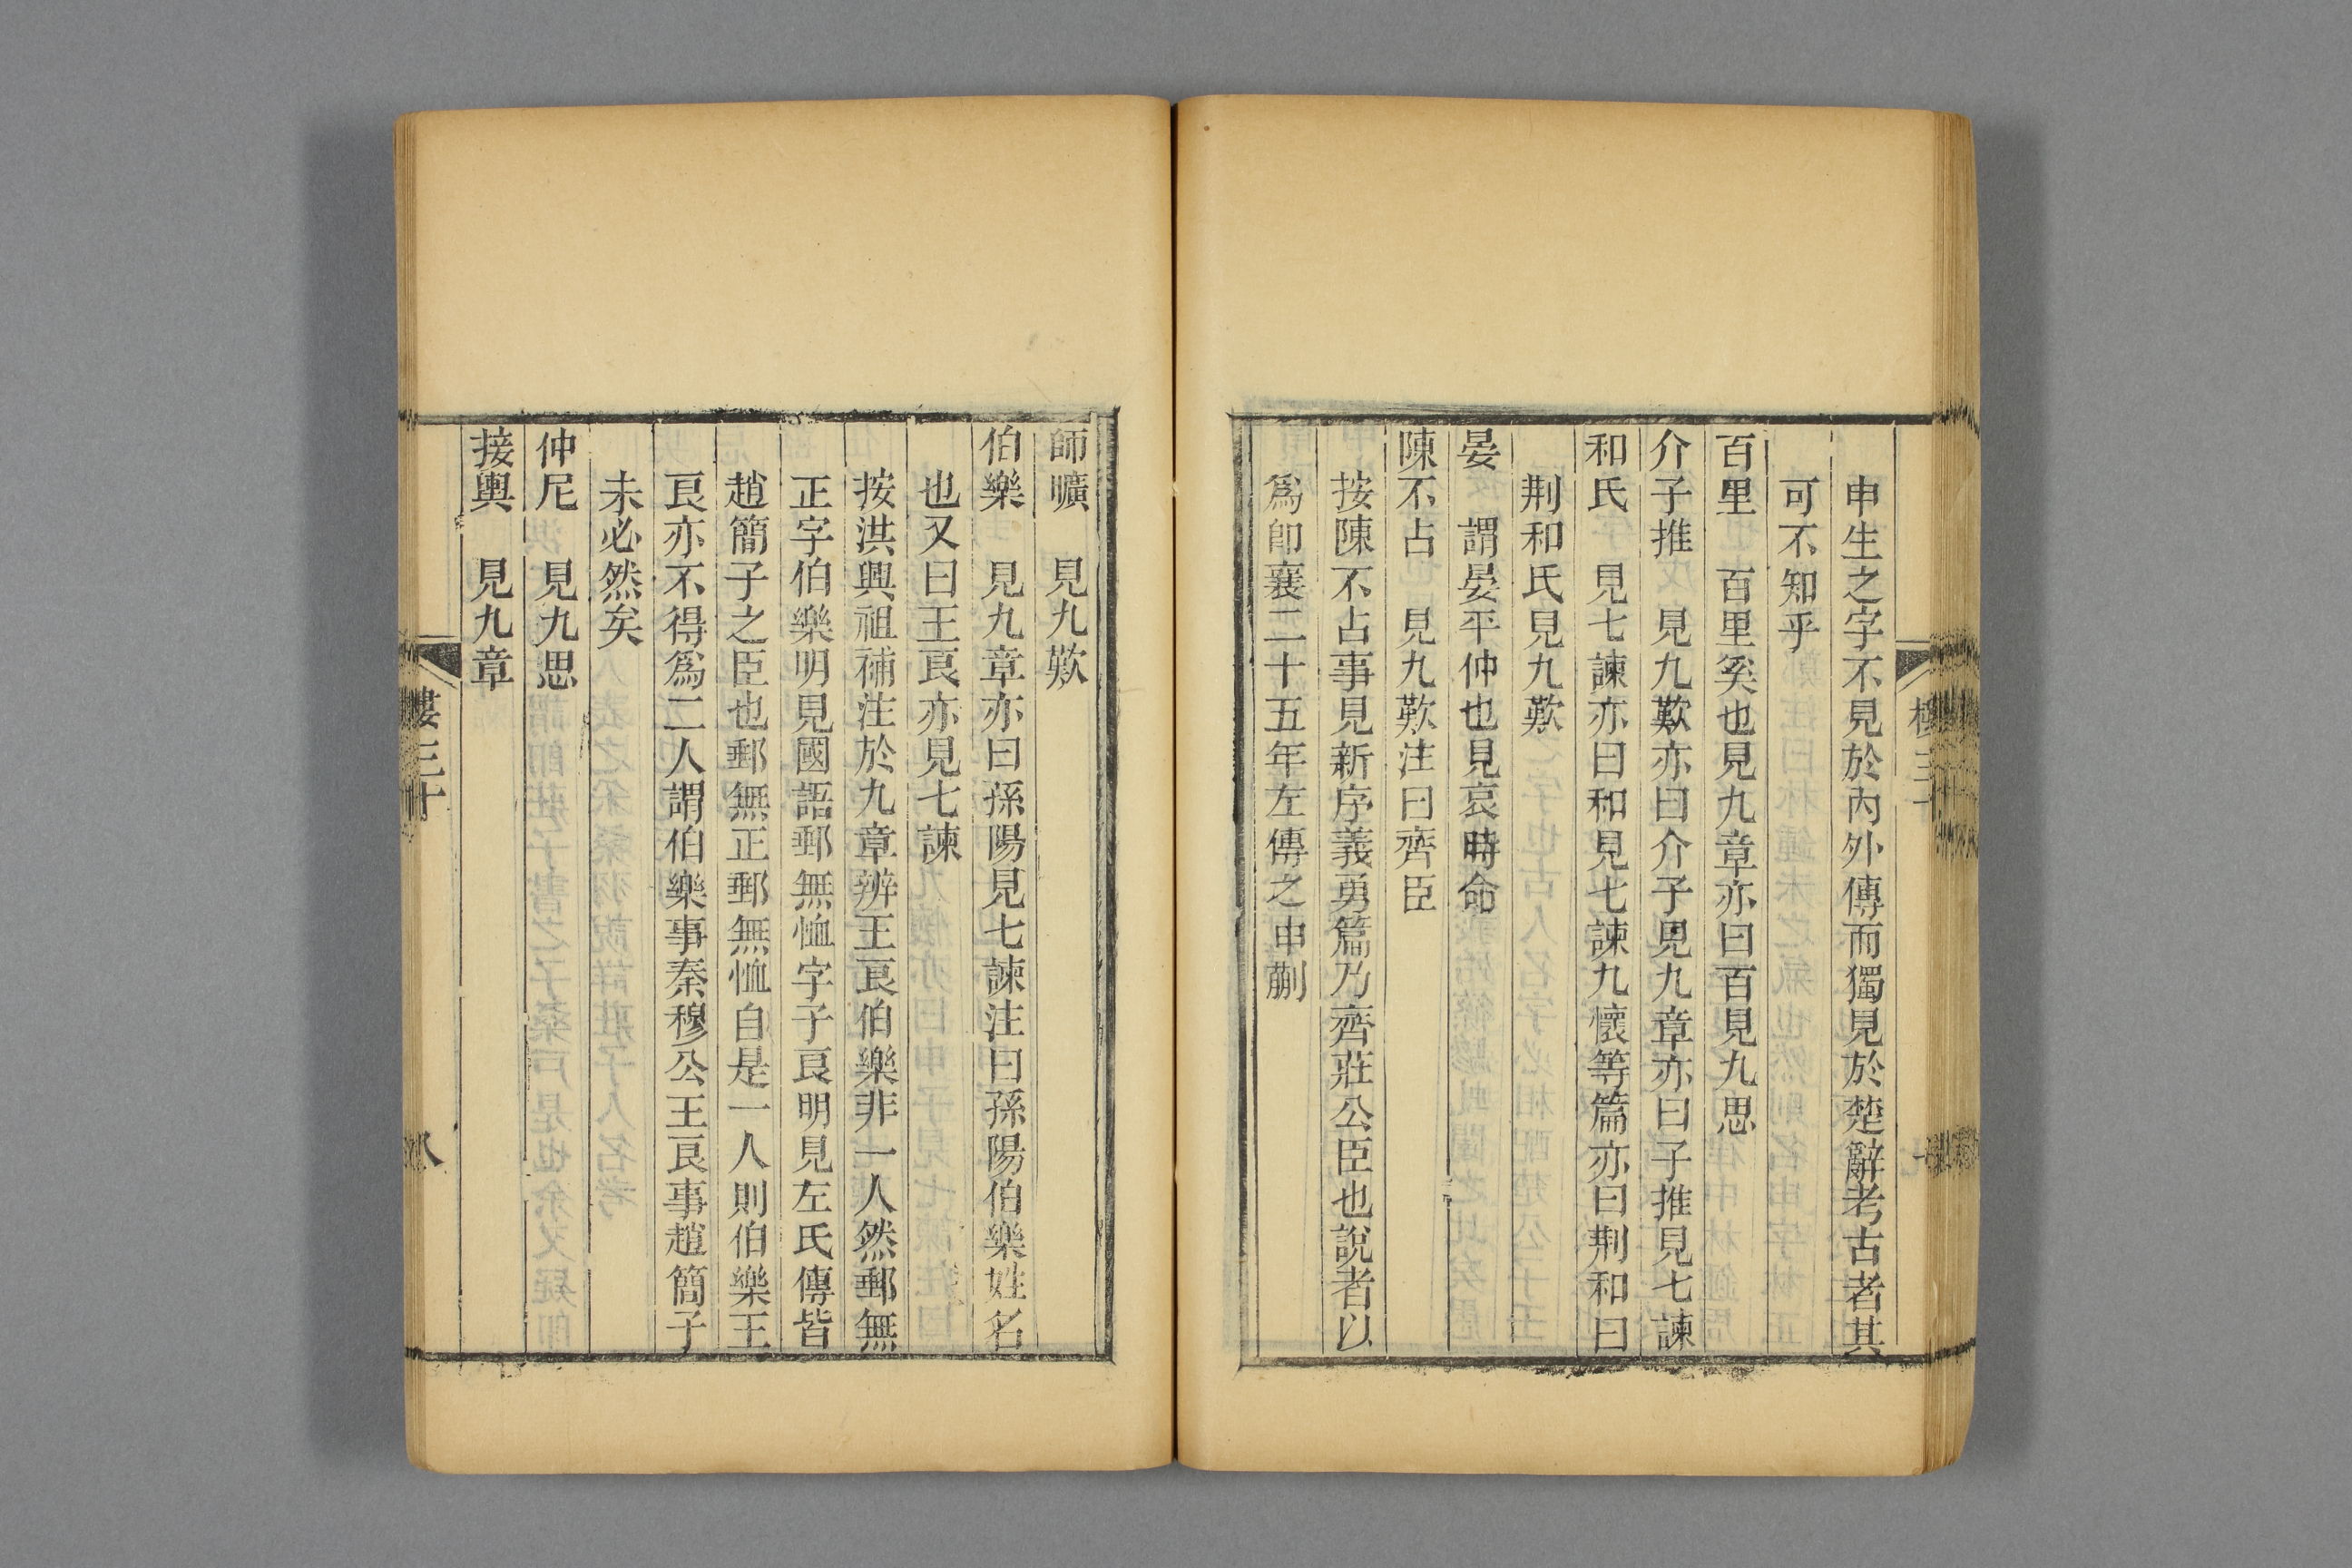 申生之字不見於內外傳而獨見於楚辭考古者其
可不知乎
百里　百里奚也見九章亦曰百見九思
介子推　見九歎亦曰介子見九章亦曰子推見七諫
和氏　見七諫亦曰和見七諫九懷等篇亦曰荆和曰
荆和氏見九歎
晏　謂晏平仲也見哀時命
陳不占　見九歎注曰齊臣
按陳不占事見新序義勇篇乃齊莊公臣也說者以
爲卽襄二十五年左傳之申蒯
師曠　見九歎
伯樂　見九章亦曰孫陽見七諫注曰孫陽伯樂姓名
也又曰王良亦見七諫
按洪興祖補注於九章辨王良伯樂非一人然郵無
正字伯樂明見國語郵無恤字子良明見左氏傳皆
趙簡子之臣也郵無正郵無恤自是一人則伯樂王
良亦不得爲二人謂伯樂事秦穆公王良事趙簡子
未必然矣
仲尼　見九思
接輿　見九章
樓三十
八